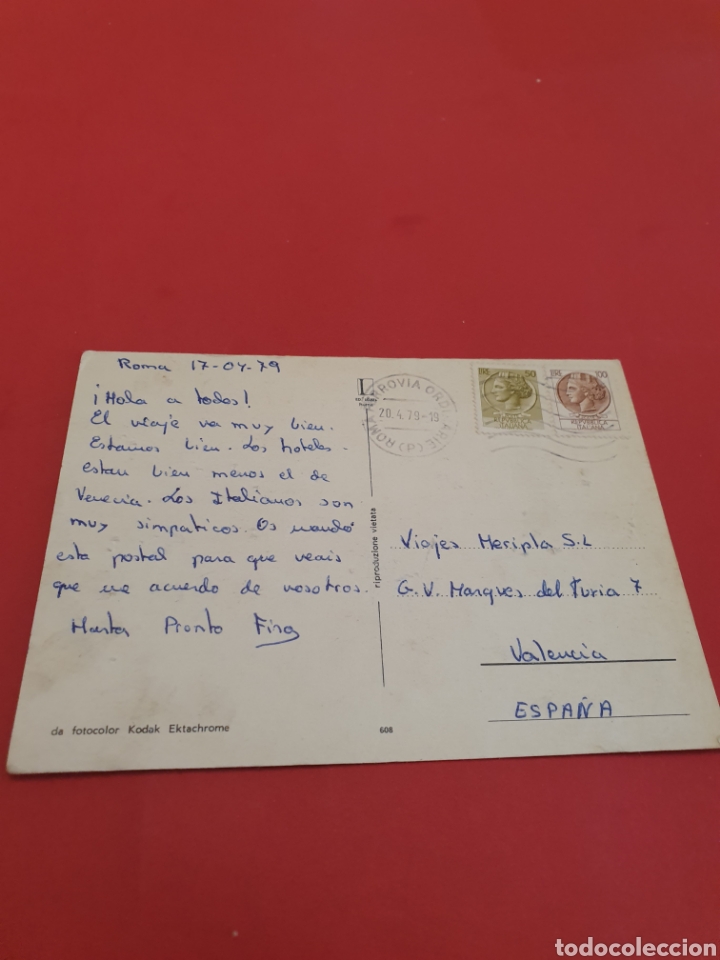 Roma 17-04-79
¡Hola a todos!
El viaje va muy bien.
Estamos bien. Los hoteles
estan bien menos el de
Venecia. Los Italianos son
muy simpaticos. Os mando
esta postal para que veais
que me acuerdo de vosotros.
Hasta Pronto Fina
da fotocolor Kodak Ektachrome
608
riproduzione vietata
ROMA FERROVIA ORDINARIE (P)
20.4.79-19
LIRE 50
REPVBBLICA
ITALIANA
LIRE 100
REPVBBLICA
ITALIANA
Viajes Meripla S.L
G.V. Marques del Turia 7
Valencia
ESPAÑA
todocoleccion